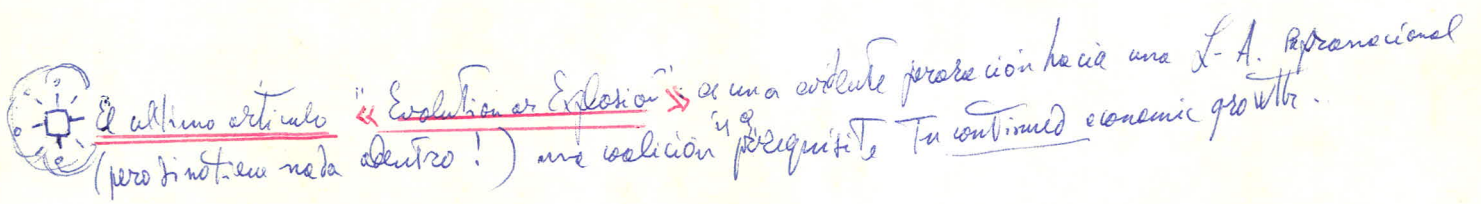 El ultimo articulo "« Evolution or Explosion"» es una evidente preparación hacia una L-A. supranacional
(pero si no tiene nada adentro!) una coalición "a prerequisite to continued economic growth.